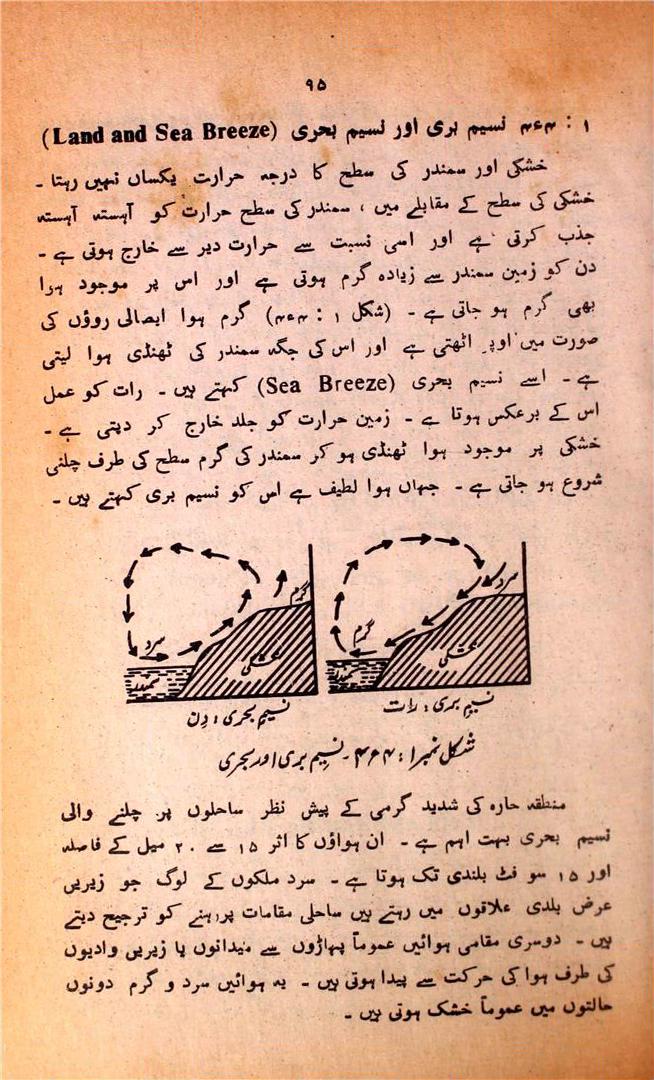 ۹۵
۱ : ۴ء۴ نسیم بری اور نسیم بحری (Land and Sea Breeze)
خشکی اور سمندر کی سطح کا درجہ حرارت یکساں نہیں رہتا ۔
خشکی کی سطح کے مقابلے میں ، سمندر کی سطح حرارت کو آہستہ آہستہ
جذب کرتی ہے اور اسی نسبت سے حرارت دیر سے خارج ہوتی ہے ۔
دن کو زمین سمندر سے زیادہ گرم ہوتی ہے اور اس پر موجود ہوا
بھی گرم ہو جاتی ہے ۔ (شکل ۱ : ۴ء۴) گرم ہوا ایصالی روؤں کی
صورت میں اوپر اٹھتی ہے اور اس کی جگہ سمندر کی ٹھنڈی ہوا لیتی
ہے ۔ اسے نسیم بحری (Sea Breeze) کہتے ہیں ۔ رات کو عمل
اس کے برعکس ہوتا ہے ۔ زمین حرارت کو جلد خارج کر دیتی ہے ۔
خشکی پر موجود ہوا ٹھنڈی ہو کر سمندر کی گرم سطح کی طرف چلنی
شروع ہو جاتی ہے ۔ جہاں ہوا لطیف ہے اس کو نسیم بری کہتے ہیں ۔
سرد
گرم
گرم
سرد
خشکی
خشکی
سمندر
سمندر
نسیم بری : رات
نسیم بحری : دن
شکل نمبر ۱ : ۴ء۴ ۔ نسیم بری اور بحری
منطقہ حارہ کی شدید گرمی کے پیش نظر ساحلوں پر چلنے والی
نسیم بحری بہت اہم ہے ۔ ان ہواؤں کا اثر ۱۵ سے ۲۰ میل کے فاصلہ
اور ۱۵ سو فٹ بلندی تک ہوتا ہے ۔ سرد ملکوں کے لوگ جو زیریں
عرض بلدی علاقوں میں رہتے ہیں ساحلی مقامات پر رہنے کو ترجیح دیتے
ہیں ۔ دوسری مقامی ہوائیں عموماً پہاڑوں سے میدانوں یا زیریں وادیوں
کی طرف ہوا کی حرکت سے پیدا ہوتی ہیں ۔ یہ ہوائیں سرد و گرم دونوں
حالتوں میں عموماً خشک ہوتی ہیں ۔